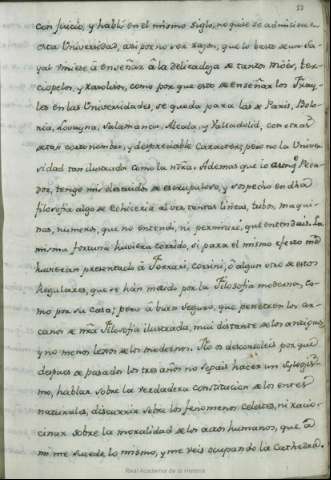 53
con juicio, y habló en el mismo siglo, no quise se admitiese en
esta Universidad, asi por no ver razon, que lo basto de un Sa-
yal viniese á enseñar á la delicadeza de tantos moèes, ter-
ciopelos, y
como por que esto de enseñar los Fray-
les en las Universidades, se queda para las de Paris, Bolo-
nia, Lovayna, Salamanca, Alcala, y Valladolid, con otras
de tan
y despreciable Caracter; pero no la Univer
sidad tan ilustrada como la nra. Ademas que io
Peca-
dor, tengo mis
de escrupuloso, y sospecho en dha
filosofia algo de echiceria al ver tantas lineas, tubos, maqui-
nas, numeros, que no entendí, ni permitiré, que entendais. La
misma fortuna huviera corrido, si para el mismo efecto me
huvieran presentado á Ferrari, Corsini, ó algun otro de estos
Regulares, que se hán metido por la Filosofia moderna, co-
mo por su casa; pero á buen seguro, que penetren los ar-
canos de nra Filosofia ilustrada, mui distante de los antiguos,
y no menos lexos de los modernos. No os desconsoleis por que
despues de pasados los tres años no sepais hacer un sylogis-
mo, hablar sobre la verdadera constitucion de los entes
naturales, discurrir sobre los fenomenos celestes, ni racio-
cinar sobre la moralidad de los actos humanos, que á
mi me sucede lo mismo, y me veis ocupando la Cathedra.
Real Academia de la Historia